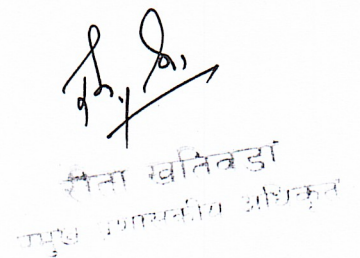 रीता खतिवडा
प्रमुख प्रशासकीय अधिकृत